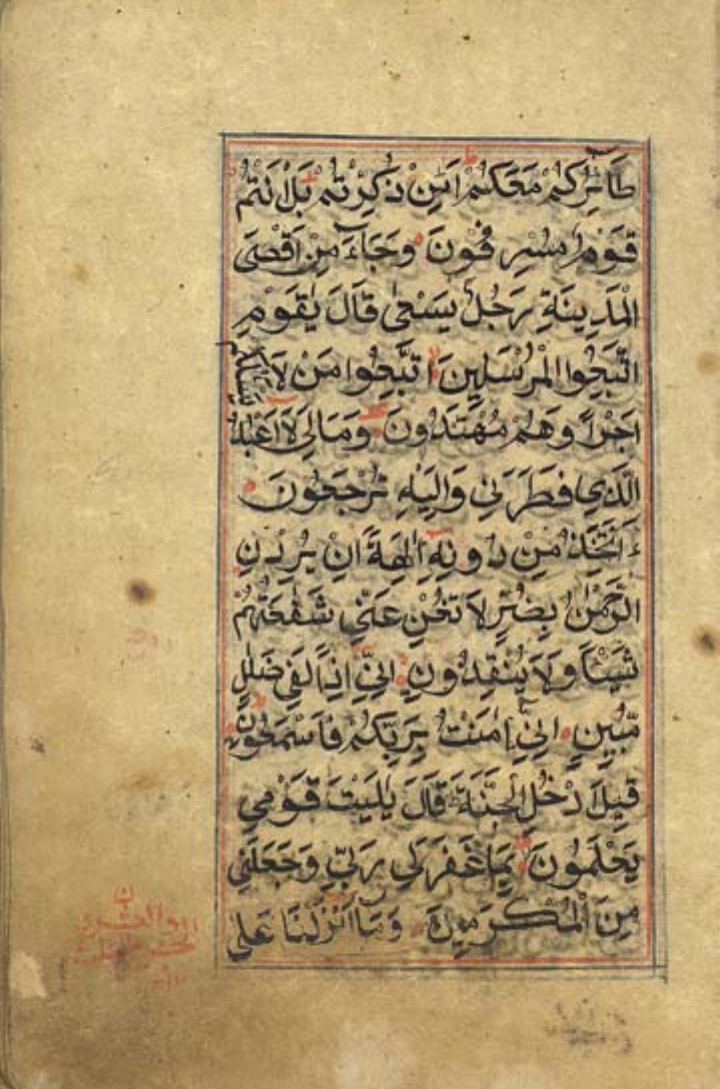 طَائِرُكُمْ مَعَكُمْ اَئِنْ ذُكِّرْتُمْ بَلْ اَنْتُمْ
قَوْمٌ مُسْرِفُونَ وَجَاءَ مِنْ اَقْصَی
الْمَدِينَةِ رَجُلٌ يَسْعٰی قَالَ يٰقَوْمِ
اتَّبِعُوا الْمُرْسَلِينَ اتَّبِعُوا مَنْ لَا يَسْئَلُكُمْ
اَجْرًا وَهُمْ مُهْتَدُونَ وَمَا لِیَ لَا اَعْبُدُ
الَّذِي فَطَرَنِي وَاِلَيْهِ تُرْجَعُونَ
ءَاَتَّخِذُ مِنْ دُونِهِ اٰلِهَةً اِنْ يُرِدْنِ
الرَّحْمٰنُ بِضُرٍّ لَا تُغْنِ عَنِّي شَفٰعَتُهُمْ
شَيْئًا وَلَا يُنْقِذُونِ اِنِّي اِذًا لَفِي ضَلٰلٍ
مُّبِينٍ اِنِّي اٰمَنْتُ بِرَبِّكُمْ فَاسْمَعُونِ
قِيلَ ادْخُلِ الْجَنَّةَ قَالَ يٰلَيْتَ قَوْمِي
يَعْلَمُونَ بِمَا غَفَرَ لِي رَبِّي وَجَعَلَنِي
مِنَ الْمُكْرَمِينَ وَمَا اَنْزَلْنَا عَلٰی